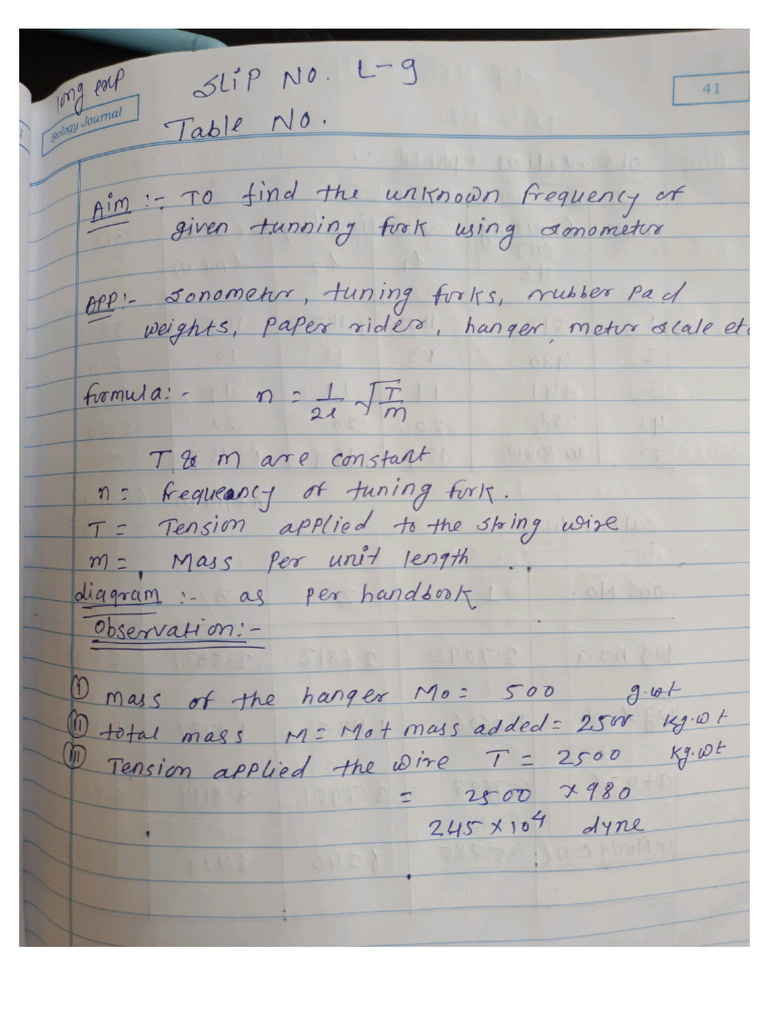 long exp
SLIP NO. L-9
41
Biology Journal
Table NO.
Aim :- TO find the unknown frequency of
given tunning fork using sonometer
APP:- sonometer, tuning forks, rubber pad
weights, paper rider, hanger, meter scale etc
formula:- n = 1/2l √T/m
T & m are constant
n = frequeancy of tuning fork.
T = Tension applied to the string wire
m = Mass per unit length
diagram :- as per handbook
Observation:-
(i) mass of the hanger Mo = 500 g.wt
(ii) total mass M = Mo + mass added = 2500 kg.wt
(iii) Tension applied the wire T = 2500 kg.wt
= 2500 × 980
245 × 10⁴ dyne